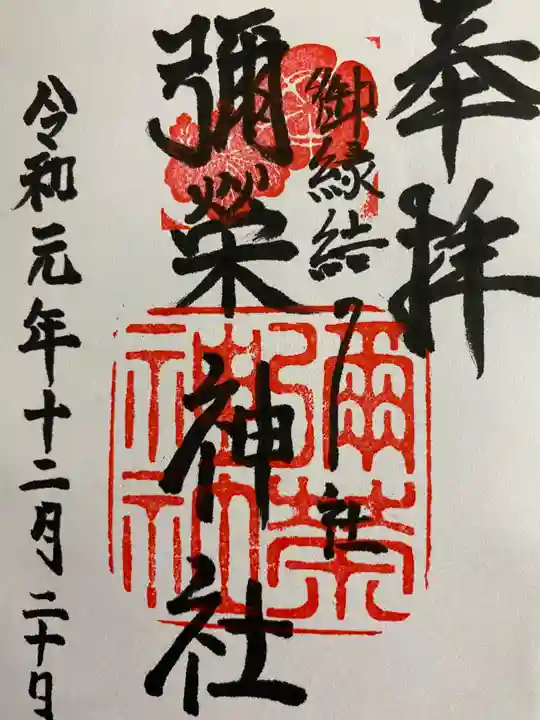 奉拝
御縁結びの社
彌榮神社
彌榮神社
令和元年十二月二十日